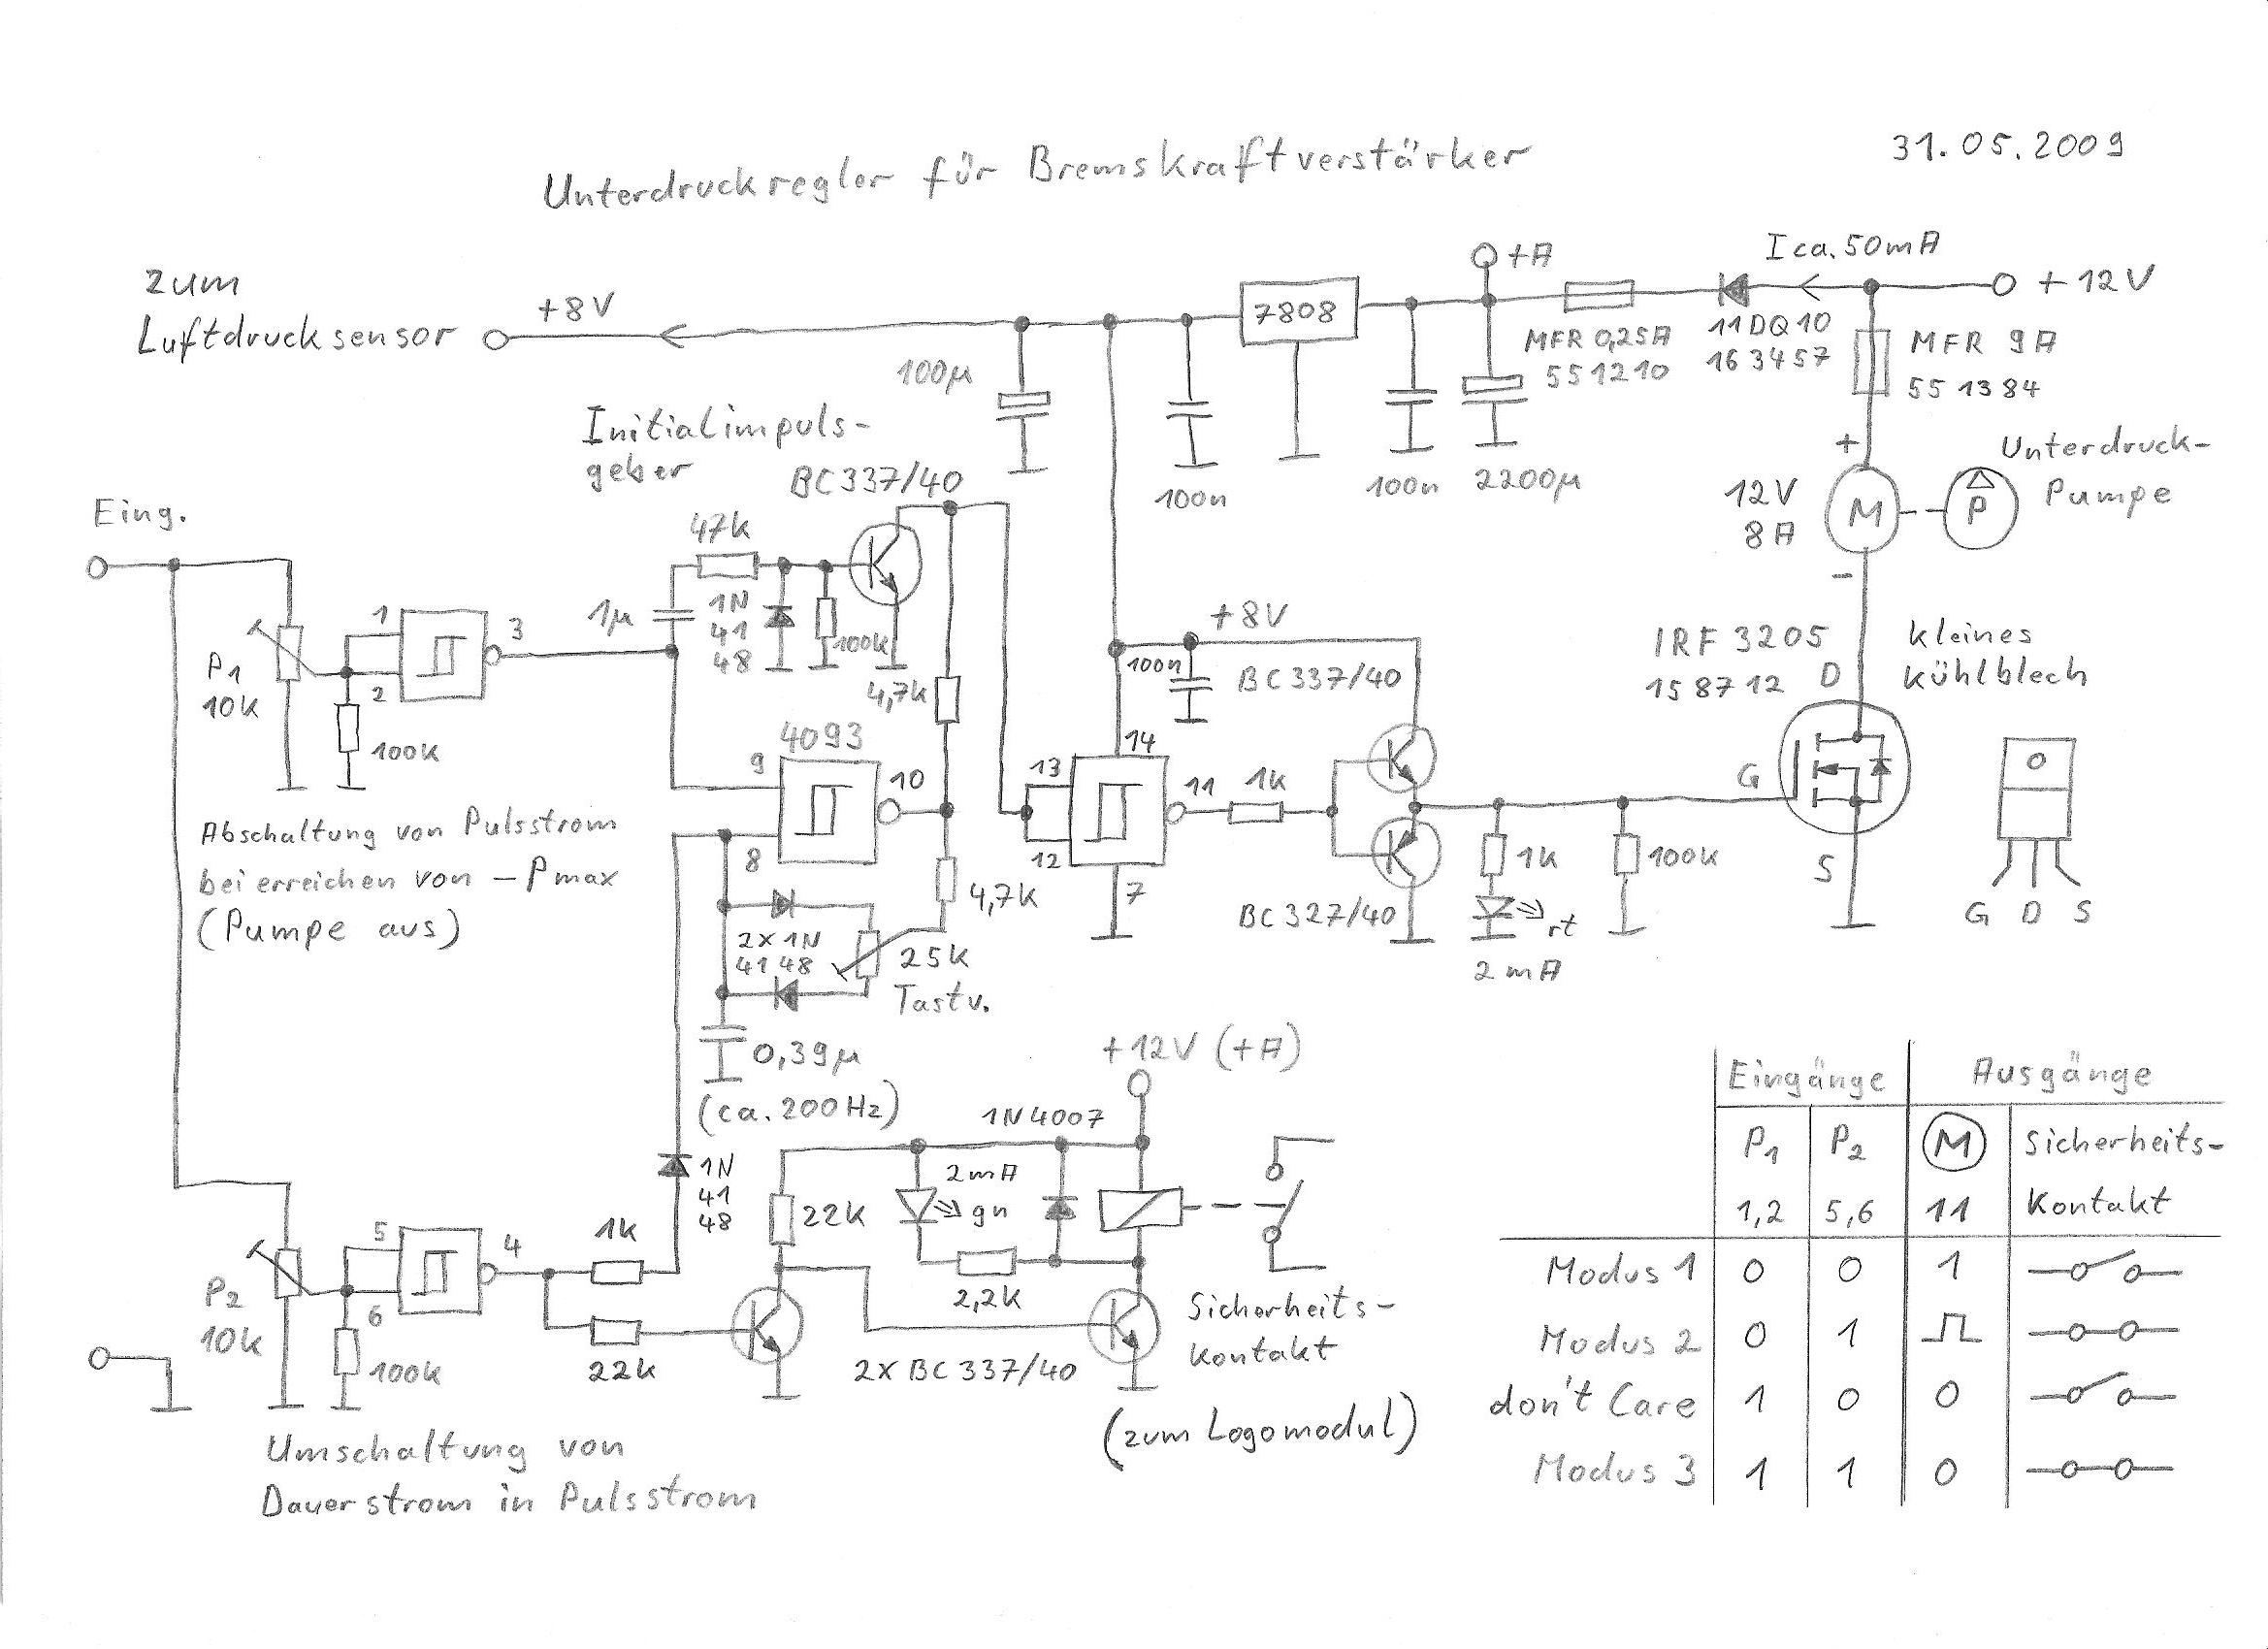 31.05.2009
Unterdruckregler für Bremskraftverstärker
I ca. 50mA
+A
+12V
zum
Luftdrucksensor
+8V
7808
11DQ10
163457
MFR 0,25A
551210
MFR 9A
551384
100µ
100n
100n
2200µ
+
Unterdruck-
Pumpe
12V
8A
M
P
-
Initialimpuls-
geber
BC337/40
Eing.
47k
1µ
1N
41
48
100k
1
2
3
P1
10k
100k
4,7k
+8V
100n
BC337/40
IRF 3205
158712
D
kleines
Kühlblech
4093
9
10
8
14
13
12
11
7
1k
G
S
BC327/40
1k
100k
rt
2mA
G D S
Abschaltung von Pulsstrom
bei erreichen von -Pmax
(Pumpe aus)
4,7k
2x1N
4148
25k
Tastv.
0,39µ
(ca. 200Hz)
+12V (+A)
1N4007
1N
41
48
22k
2mA
gn
2,2k
5
6
4
1k
22k
P2
10k
100k
2x BC337/40
Sicherheits-
Kontakt
(zum Logomodul)
Umschaltung von
Dauerstrom in Pulsstrom
Eingänge Ausgänge
P1 P2 M Sicherheits-
1,2 5,6 11 Kontakt
Modus 1 0 0 1
Modus 2 0 1
don't Care 1 0 0
Modus 3 1 1 0